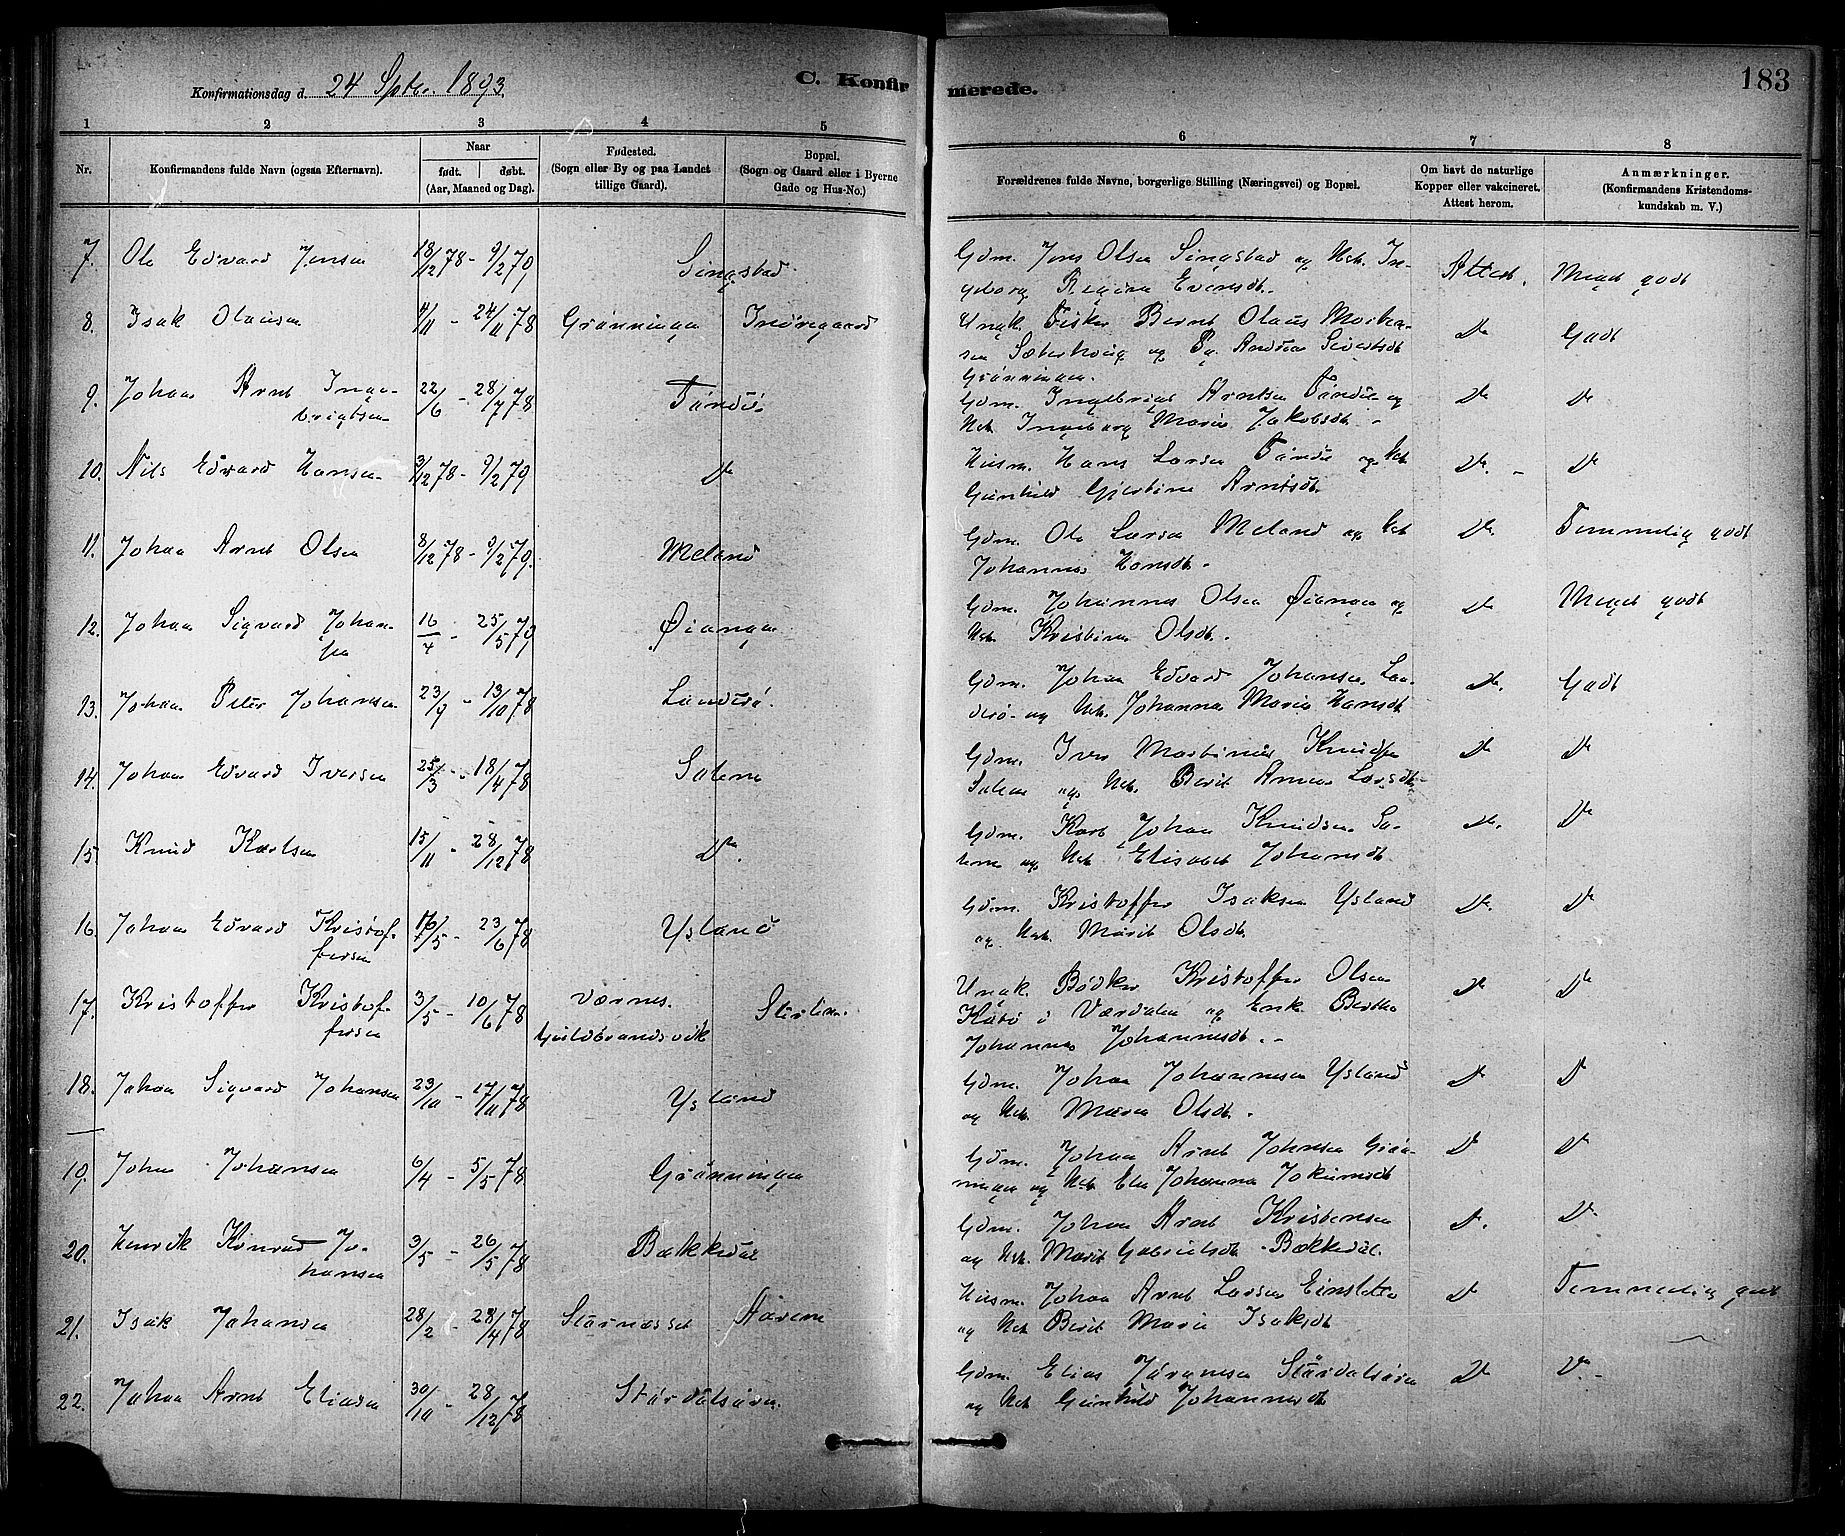 Konfirmationsdag d. 24 Sptbr. 1893.
C. Konfirmerede.
183
1 2 3 4 5 6 7 8
Nr.
Konfirmandens fulde Navn (ogsaa Efternavn).
Naar
født. døbt.
(Aar, Maaned og Dag).
Fødested.
(Sogn eller By og paa Landet
tillige Gaard).
Bopæl.
(Sogn og Gaard eller i Byerne
Gade og Hus-No.)
Forældrenes fulde Navne, borgerlige Stilling (Næringsvei) og Bopæl.
Om havt de naturlige
Kopper eller vakcineret.
Attest herom.
Anmærkninger.
(Konfirmandens Kristendoms-
kundskab m. V.)
7. Ole Edvard Jensen 18/12 78 - 9/2 79 Singstad Gdm. Jens Olsen Singstad og Hst. In- Attest. Meget godt
geborg Regina Evensdt.
8. Isak Olausen 4/11 - 24/11 78 Grønningen Ungk. Fisker Bernt Olaus Morten- Do Godt
sen Sæterhøug og Pg. Andrea Sivertsdt
Grønningen.
9. Johan Arnt Inge- 22/6 - 28/7 78 Gdm. Ingebrigt Arntsen og Do Do
brigtsen Hst. Ingeborg Maria Jakobsdt.
10. Nils Edvard Hansen 3/12 78 - 9/2 79 Do Husm. Hans Larsen og Hst Do. - Do
Gunhild Gjertine Arntsdt.
11. Johan Arnt Olsen 8/12 78 - 9/2 79. Meland Gdm. Ole Larsen Meland og Hst Do Temmelig godt
Johanna Hansdt.
12. Johan Sigvard Johan- 16/4 - 25/5 79 Øiangen Gdm. Johannes Olsen Øiangen og Do Meget godt
sen Hst. Kristine Olsdt.
13. Johan Peter Johansen 23/9 - 13/10 78 Landrø. Gdm. Johan Edvard Johansen Lan- Do. Godt
drø og Hst. Johanna Maria Hansdt
14. Johan Edvard Iversen 25/3 - 18/4 78 Salene Gdm. Iver Martinus Knudsen Do Do
Salene og Hst. Berit Anna Larsdt
15. Knud Karlsen 15/11 - 28/12 78 Do. Gdm. Karl Johan Knudsen Sa- Do. Do
lene og Hst Elisabet Johansdt.
16. Johan Edvard Kristof- 16/5 - 23/6 78 Ysland Gdm. Kristoffer Isaksen Ysland Do. Do
fersen og Hst. Marit Olsdt.
17. Kristoffer Kristof- 3/5 - 10/6 78 Værnes. Ungk. Bødker Kristoffer Olsen Do Do
fersen Guldbrandsvik i Værdalen og Enke Bertha
Johanna Johannesdt. -
18. Johan Sigvard Johansen 23/10 - 17/11 78 Ysland Gdm. Johan Johannesen Ysland Do Do
og Hst. Maren Olsdt.
19. Johan Johansen 6/4 - 5/5 78 Grønningen Gdm. Johan Arnt Johnsen Grøn- Do Do
ningen og Hst Elen Johanna Jokumsdt
20. Henrik Konrad Jo- 3/5 - 26/5 78 Bækkedal Gdm. Johan Arnt Kristensen Do. Do
hansen og Hst. Marit Gabrielsdt. Bækkedal.
21. Isak Johansen 28/2 - 28/4 78 Størnesset Husm. Johan Arnt Larsen Do Temmelig godt
og Hst Berit Maria Isaksdt
22. Johan Arnt Eliasen 30/10 - 28/12 78 Størdalsøren Gdm. Elias Størdalsøren Do Do. -
og Hst Gunhild Johannesdt